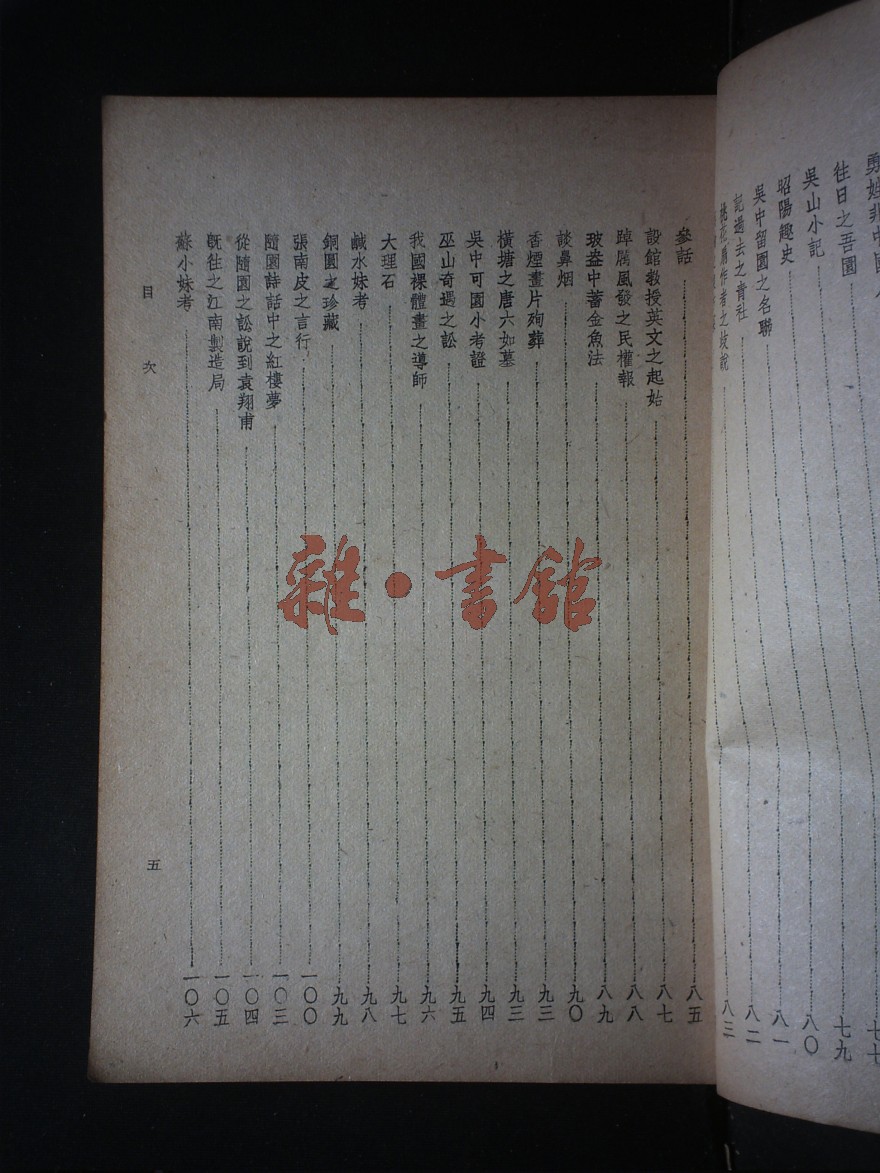 往日之吾園 七九
吳山小記 八〇
昭陽趣史 八一
吳中留園之名聯 八二
記過去之青社
桃花扇作者之歧說 八三
參話 八五
設館教授英文之起始 八七
踔厲風發之民權報 八八
玻盎中蓄金魚法 八九
談鼻烟 九〇
香煙畫片殉葬 九三
橫塘之唐六如墓 九三
吳中可園小考證 九四
巫山奇遇之訟 九五
我國裸體畫之導師 九六
大理石 九七
鹹水妹考 九八
銅圓之珍藏 九九
張南皮之言行 一〇〇
隨園詩話中之紅樓夢 一〇三
從隨園之訟說到袁翔甫 一〇四
既往之江南製造局 一〇五
蘇小妹考 一〇六
目次
五
雜·書館